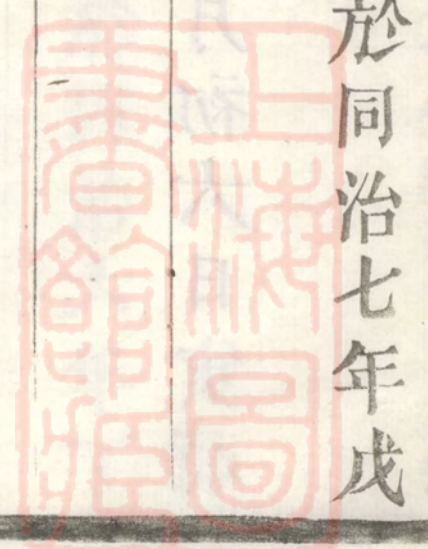 於同治七年戊
上海圖
書館藏